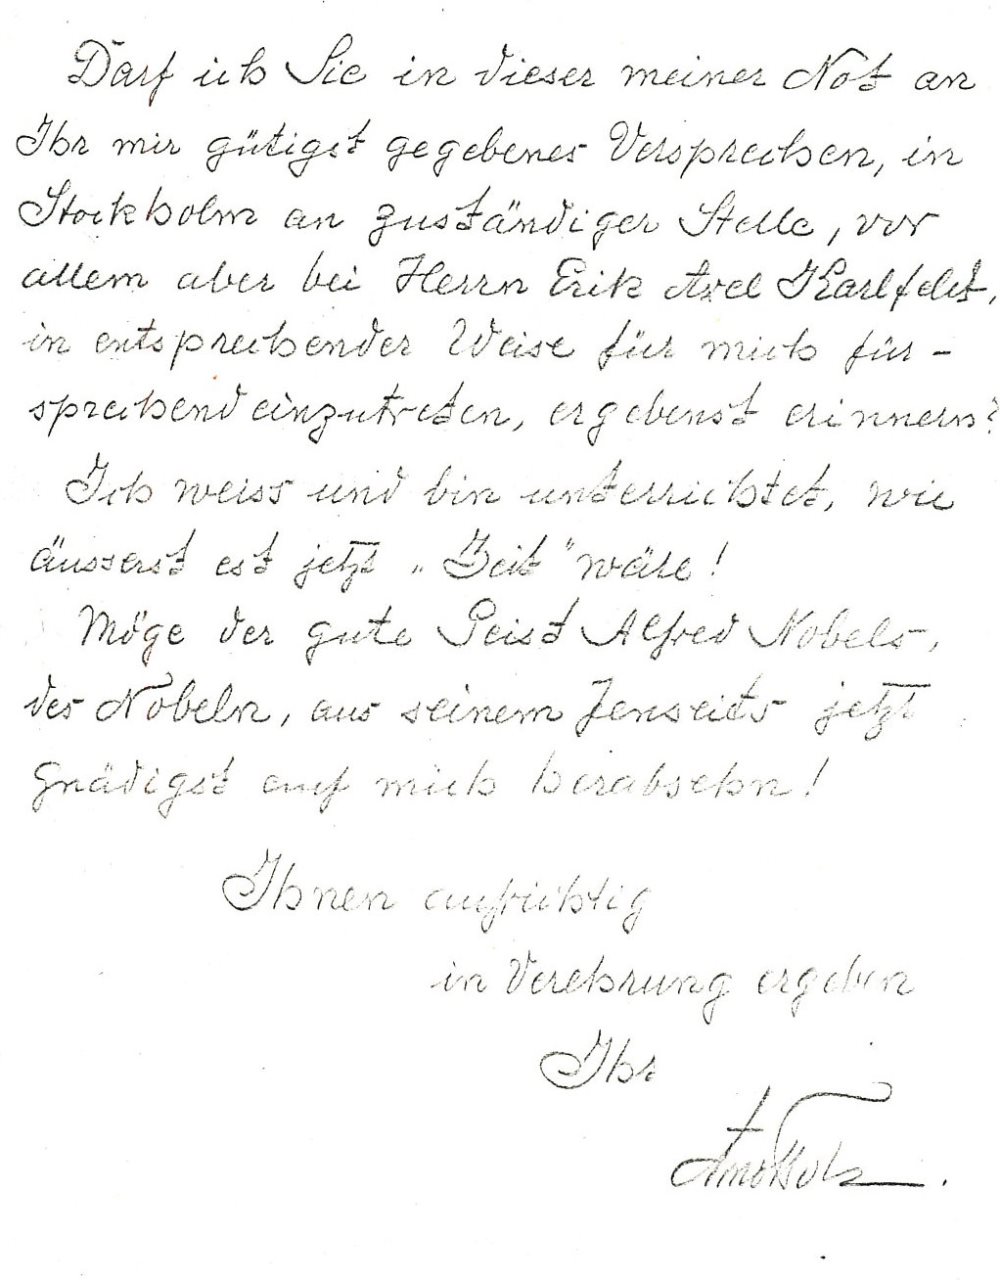 Darf ich Sie in dieser meiner Not an
Ihr mir gütigst gegebenes Versprechen, in
Stockholm an zuständiger Stelle, vor
allem aber bei Herrn Erik Axel Karlfeldt,
in entsprechender Weise für mich für-
sprechend einzutreten, ergebenst erinnern?
Ich weiss und bin unterrichtet, wie
äusserst es jetzt „Zeit" wäre!
Möge der gute Geist Alfred Nobels,
des Nobeln, aus seinem Jenseits jetzt
gnädigst auf mich herabsehn!
Ihnen aufrichtig
in Verehrung ergeben
Ihr
Arno Holz.